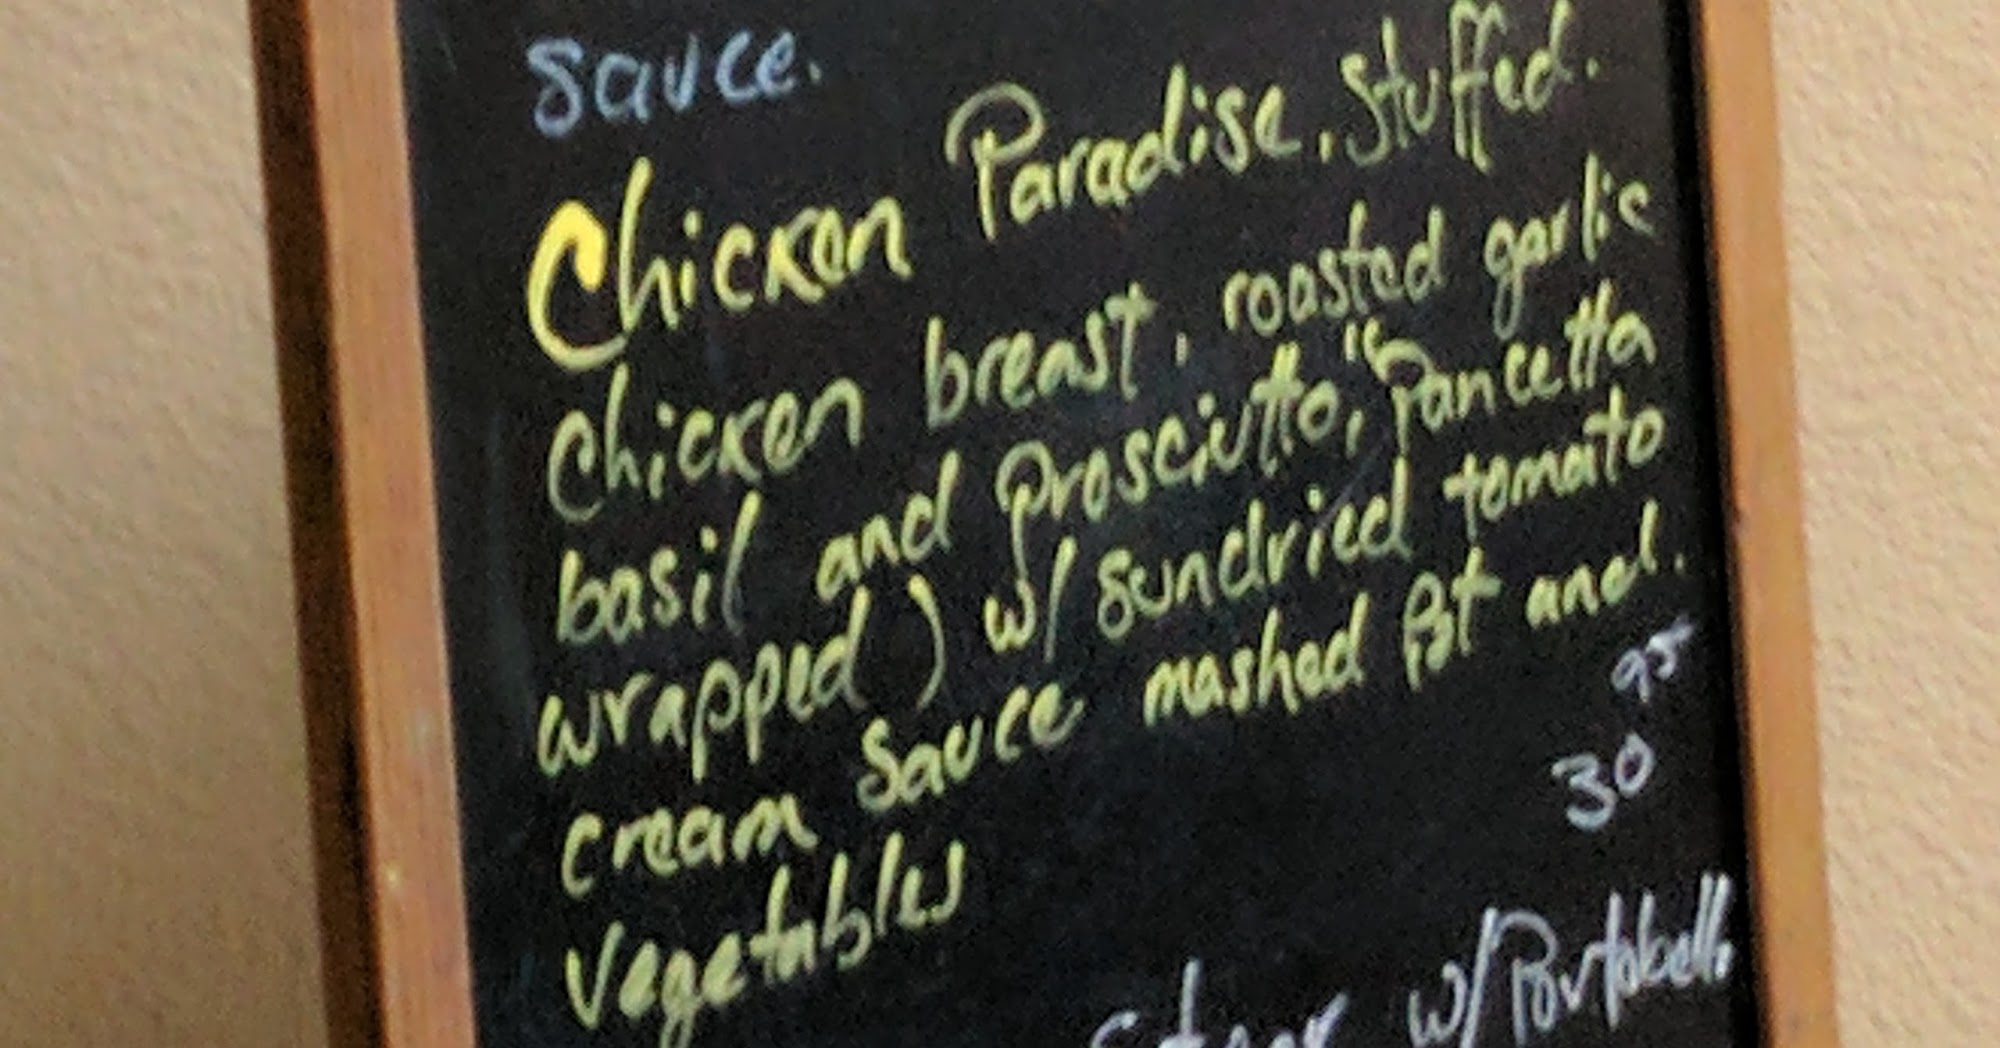 Sauce.
Chicken Paradise. Stuffed.
Chicken breast, roasted garlic
basil and prosciutto, "Pancetta
wrapped) w/ sundried tomato
cream sauce mashed Pot and.
Vegetables
30 95
w/Portobello